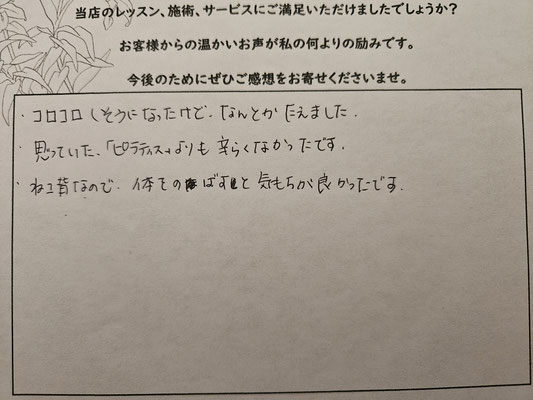 当店のレッスン、施術、サービスにご満足いただけましたでしょうか?
お客様からの温かいお声が私の何よりの励みです。
今後のためにぜひご感想をお寄せくださいませ。
・コロコロしそうになったけど、なんとかたえました。
・思っていた、「ピラティス」よりも辛らくなかったです。
・ねこ背なので、体をのばすと気もちが良かったです。